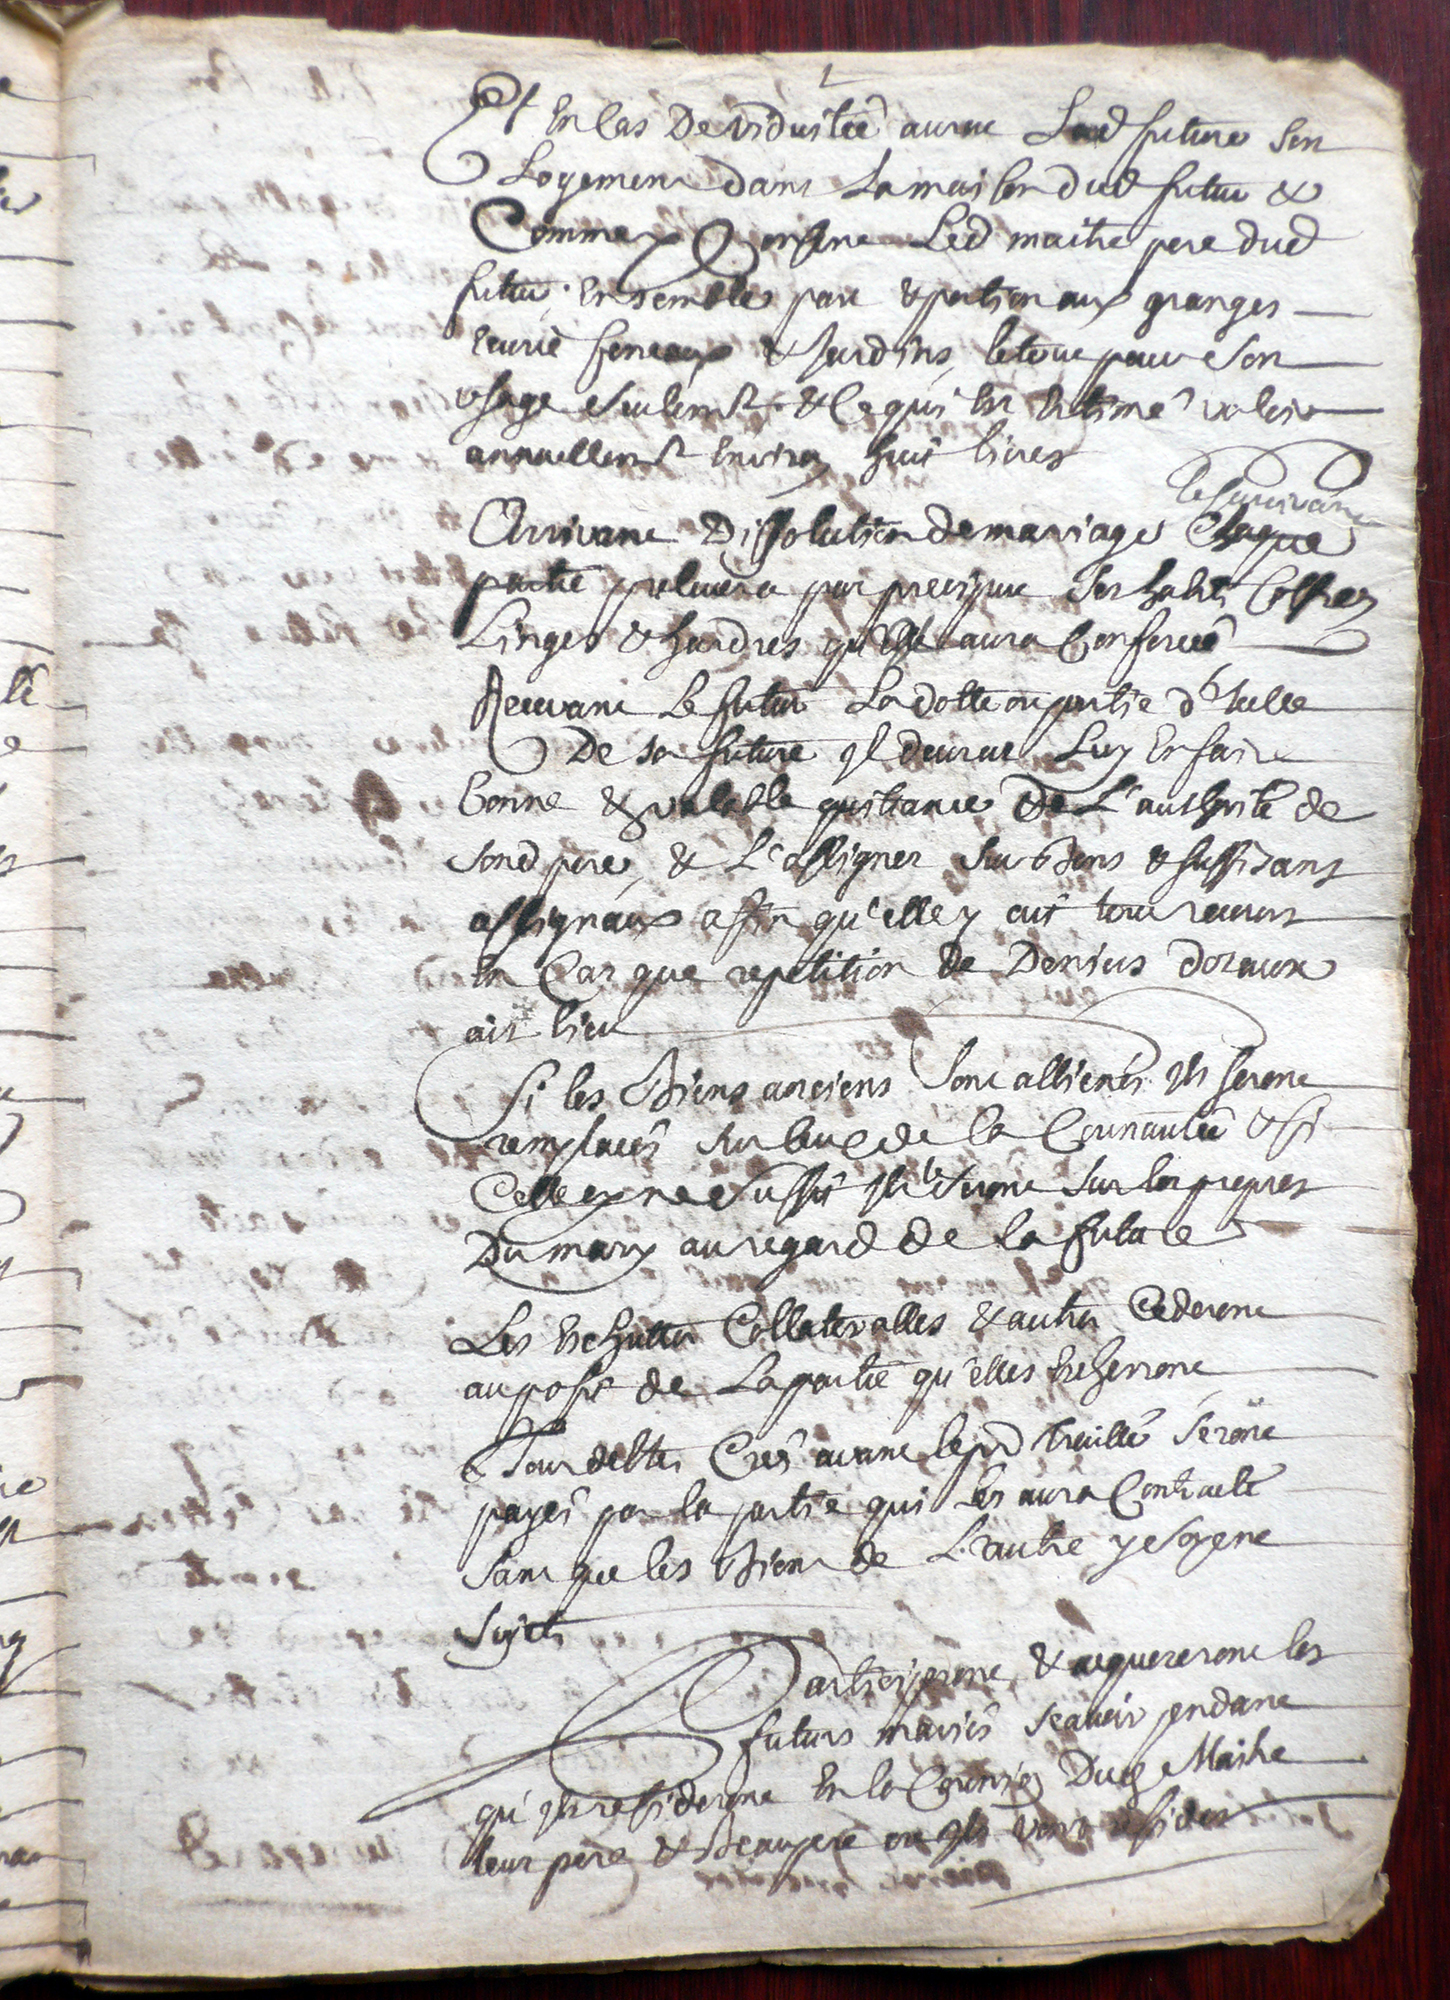 Et en cas de viduitée aurat Lad future son
Logement dans la maison dud futur &
Comme y Consent Led maitre pere dud
futur, ensembles part & portion aux granges
eurie feneaux & Jardins, letout pour son
usage seulemt. & Ce qui est estimé valoir
annuellemt environ huit livres
Arrivant Dissolution de mariage Chaque
le survivant
partie prelevera par precipu ses habits Coffres
Linges & hardres qu'il aura Conservé
Recevant Le futur La dotte ou partie d'Icelle
De sa future Il devrat Luy en faire
bonne & valable quittance de L'authorité de
sond pere, & L'assigner sur biens & suffisans
assignaux affin qu'elle y ait tout recours
en Cas que repetition de Deniers dotaux
ait lieu
Si les biens anciens sont allienés Ils seront
remplacés sur ceux de la Comnautée & si
Celle cy ne suffit Ils le seront sur les propres
Du mary au regard de la future
Les Echuttes Collateralles & autres Cederont
au profit de La partie qu'elles Echerront
Tous debtes Creés avant le pnt traitté seront
payés par la partie qui les aura Contracté
sans que les biens de L'autre y soyent
sujets
Participeront & acquereront les
futurs mariés scavoir pendant
qu'Ils resideront en la Comnion Dud Maitre
leur pere & Beaupere ou Ils vont resider